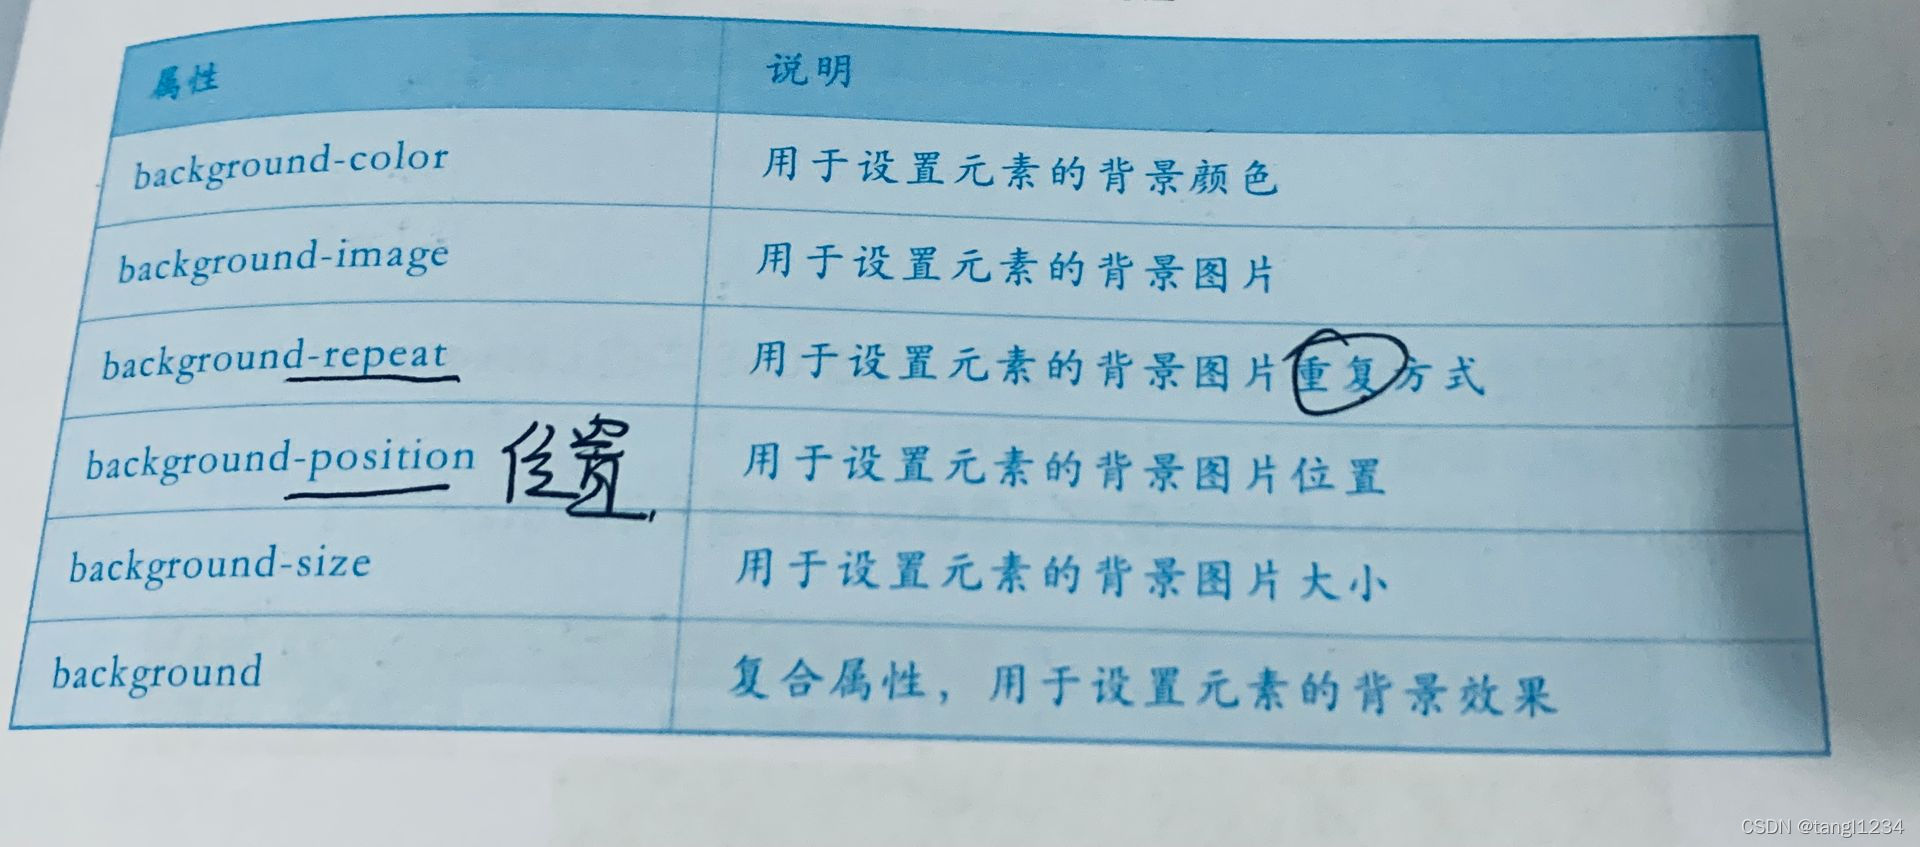 属性 说明
background-color 用于设置元素的背景颜色
background-image 用于设置元素的背景图片
background-repeat 用于设置元素的背景图片重复方式
background-position 位置 用于设置元素的背景图片位置
background-size 用于设置元素的背景图片大小
background 复合属性，用于设置元素的背景效果
CSDN @tangl1234